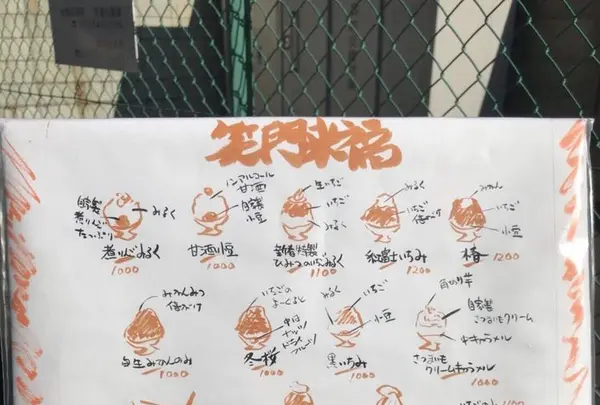 笑門来福
自家製
煮りんご
たっぷり
みるく
煮りんごみるく
1000
ノンアルコール
甘酒
自家製
小豆
甘酒小豆
1000
生いちご
いちご
みるく
新春特製
ひみつのいちみるく
1100
みるく
いちご
倍がけ
1200
みかん
いちご
小豆
椿
1200
みかんみつ
倍がけ
1000
いちごの
よーぐると
中は
ナッツ
ドライ
フルーツ
冬桜
1000
みるく
いちご
小豆
黒いちみ
1000
角切り芋
自家製
さつまいもクリーム
キャラメル
さつまいも
クリームキャラメル
1000